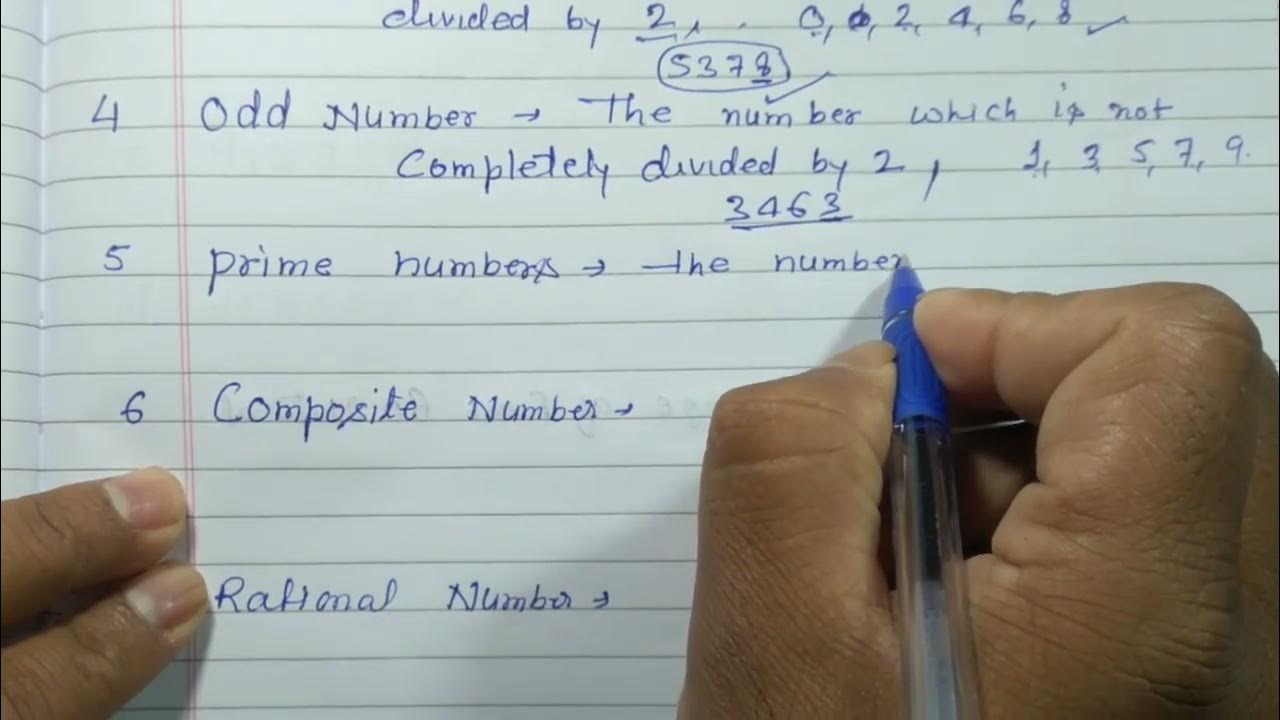 divided by 2, 0, 2, 4, 6, 8
5378
4 Odd Number → The number which is not
Completely divided by 2, 1, 3, 5, 7, 9.
3463
5 Prime numbers → the number
6 Composite Number →
Rational Number →